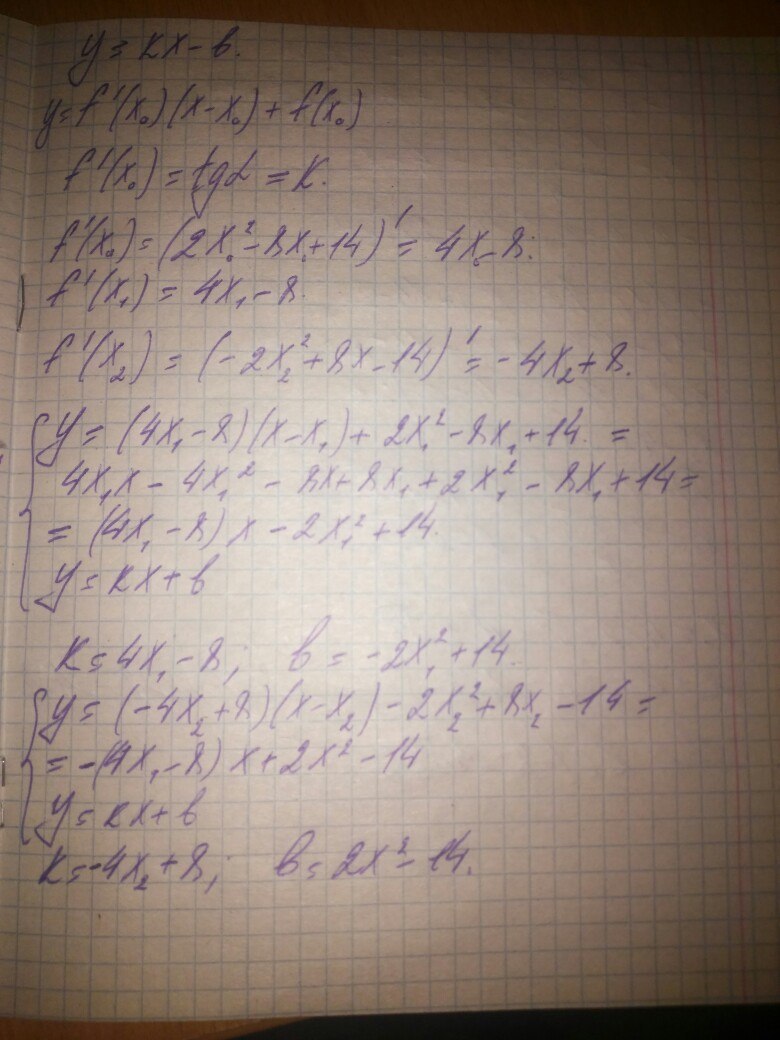 y = kx - b.
y = f'(x₀)(x-x₀) + f(x₀)
f'(x₀) = tgα = k.
f'(x₀) = (2x₀² - 8x₀ + 14)' = 4x₀ - 8.
f'(x₁) = 4x₁ - 8.
f'(x₂) = (-2x₂² + 8x - 14)' = -4x₂ + 8.
y = (4x₁ - 8)(x - x₁) + 2x₁² - 8x₁ + 14 =
4x₁x - 4x₁² - 8x + 8x₁ + 2x₁² - 8x₁ + 14 =
= (4x₁ - 8)x - 2x₁² + 14.
y = kx + b
k = 4x₁ - 8; b = -2x₁² + 14.
y = (-4x₂ + 8)(x - x₂) - 2x₂² + 8x₂ - 14 =
= -(4x₁ - 8)x + 2x² - 14
y = kx + b
k = -4x₂ + 8; b = 2x² - 14.